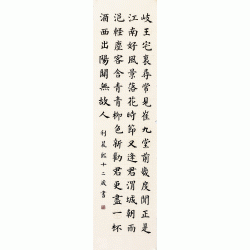 岐王宅裏尋常見崔九堂前幾度聞正是
江南好風景落花時節又逢君渭城朝雨
浥輕塵客舍青青柳色新勸君更盡一杯
酒西出陽關無故人
十二歲書